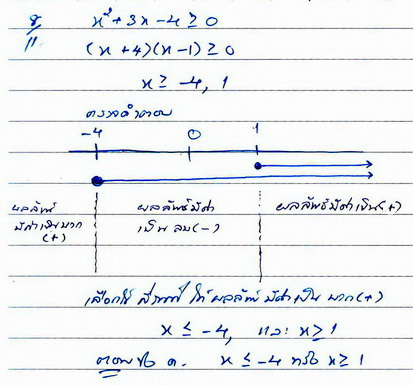 8/11. x²+3x-4 ≥ 0
(x+4)(x-1) ≥ 0
x ≥ -4, 1
ตรวจคำตอบ
-4 0 1
ผลลัพธ์ มีค่าเป็นบวก (+)
ผลลัพธ์มีค่า เป็น ลบ(-)
ผลลัพธ์มีค่าเป็น(+)
เลือกใช้ ที่ทำให้ ผลลัพธ์ มีค่าเป็น บวก(+)
x ≤ -4, และ x ≥ 1
ตอบข้อ ค. x ≤ -4 หรือ x ≥ 1